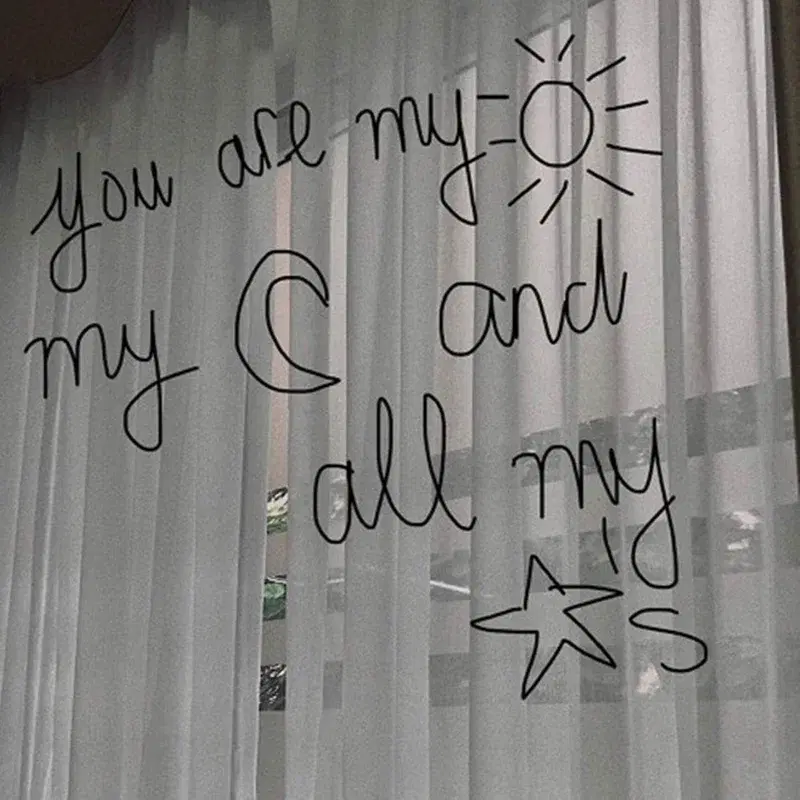 you are my
my and
all my
s